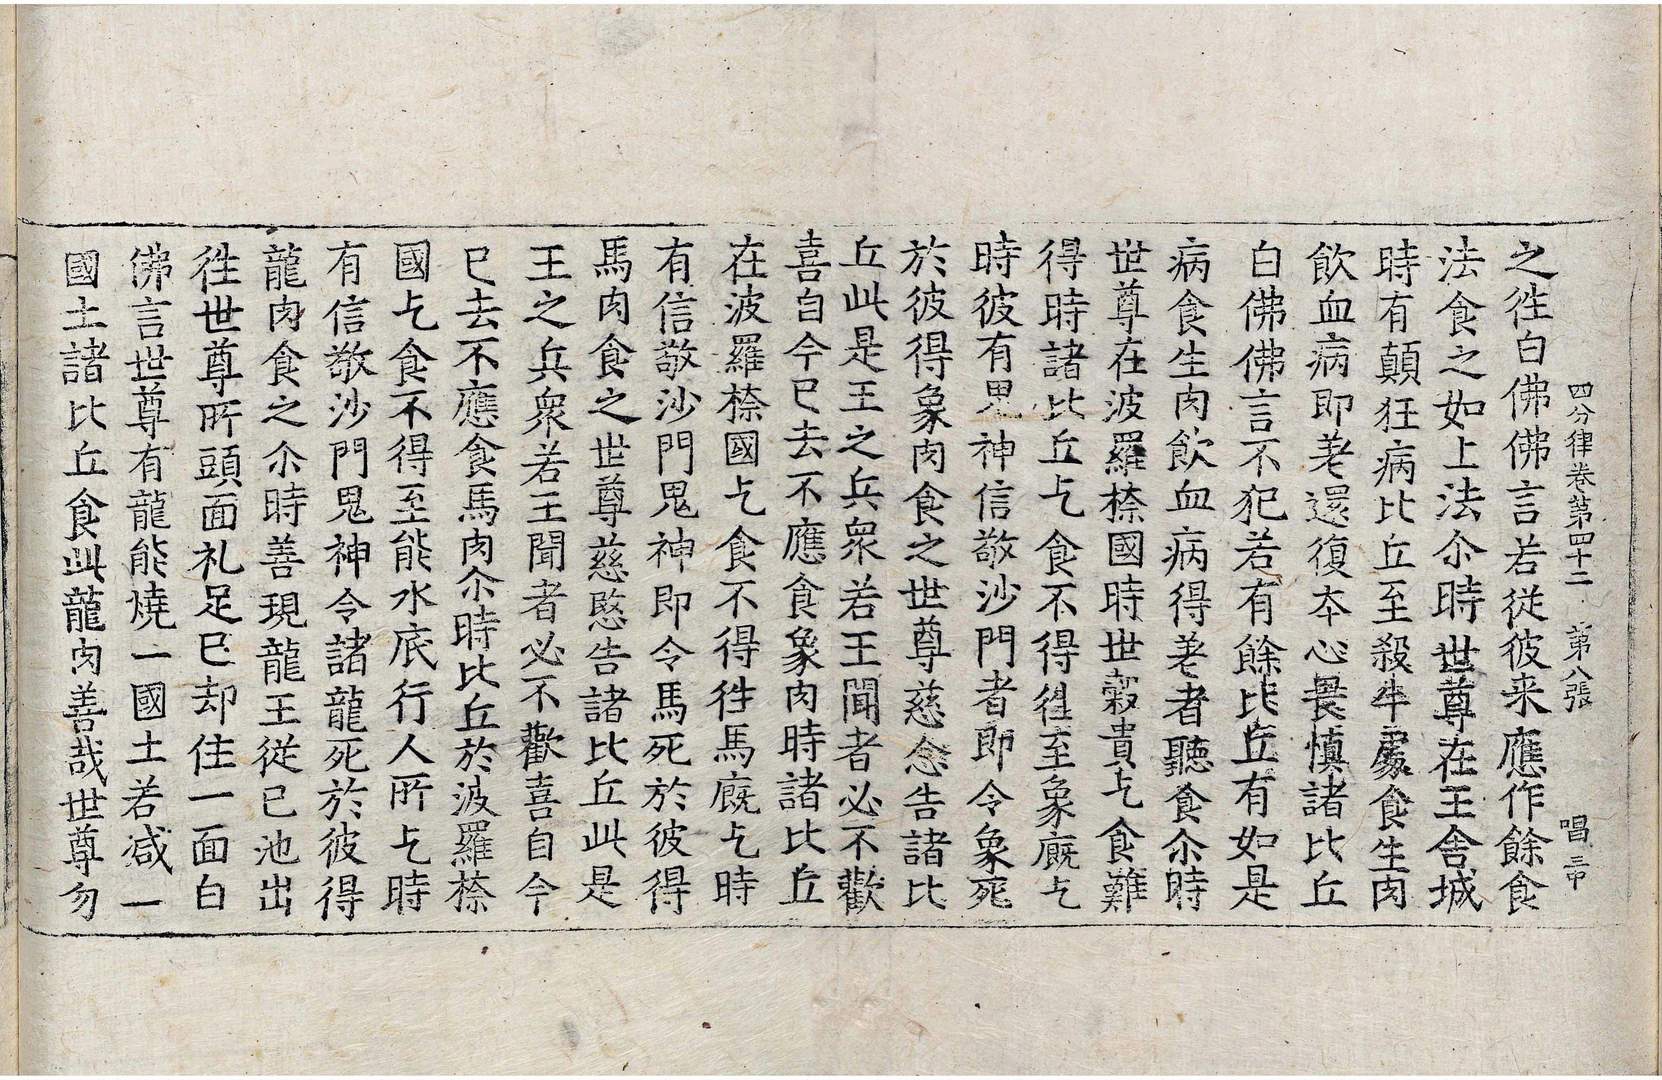 四分律卷第四十二 第八張 唱
之往白佛佛言若從彼来應作餘食
法食之如上法尒時世尊在王舎城
時有顛狂病比丘至殺牛處食生肉
飲血病即差還復本心畏慎諸比丘
白佛佛言不犯若有餘比丘有如是
病食生肉飲血病得差者聽食尒時
世尊在波羅㮈國時世穀貴乞食難
得時諸比丘乞食不得往至象廄乞
時彼有鬼神信敬沙門者即令象死
於彼得象肉食之世尊慈念告諸比
丘此是王之兵衆若王聞者必不歡
喜自今已去不應食象肉時諸比丘
在波羅㮈國乞食不得往馬廄乞時
有信敬沙門鬼神即令馬死於彼得
馬肉食之世尊慈愍告諸比丘此是
王之兵衆若王聞者必不歡喜自今
已去不應食馬肉尒時比丘於波羅㮈
國乞食不得至能水底行人所乞時
有信敬沙門鬼神令諸龍死於彼得
龍肉食之尒時善現龍王從已池出
往世尊所頭面礼足已却住一面白
佛言世尊有龍能燒一國土若减一
國土諸比丘食此龍肉善哉世尊勿